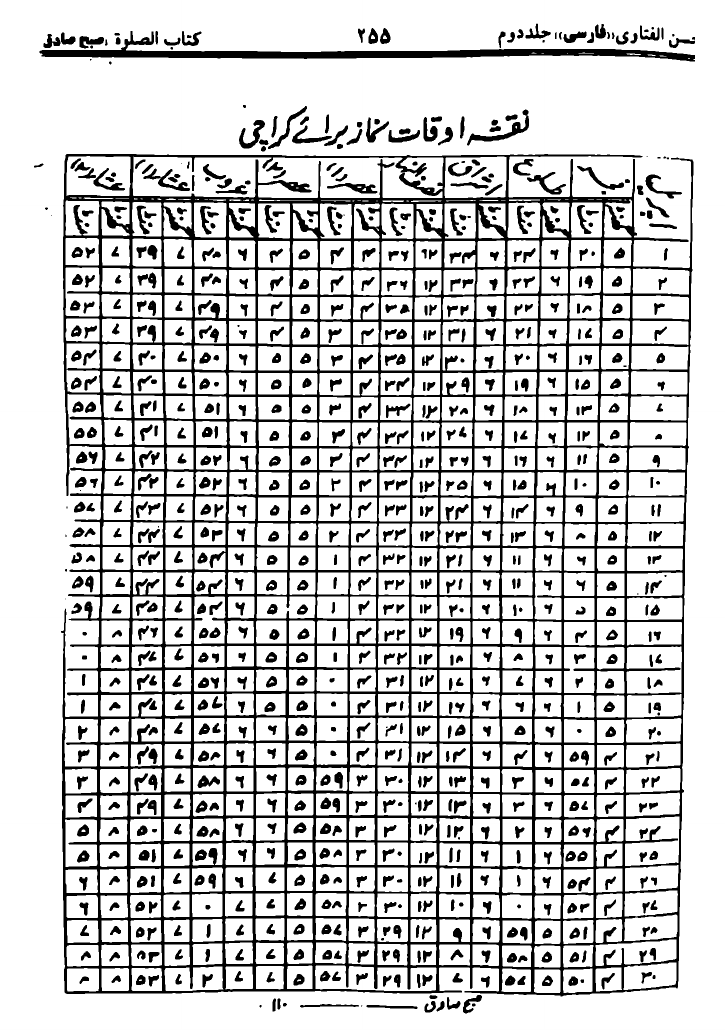 حسن الفتاوی «فارسی» جلد دوم ۲۵۵ کتاب الصلوة، صبح صادق
نقشہ اوقات نماز برائے کراچی
اپریل فجر طلوع اشراق نصف النہار عصر(۱) عصر(۲) غروب عشاء(۱) عشاء(۲)
گھنٹہ منٹ گھنٹہ منٹ گھنٹہ منٹ گھنٹہ منٹ گھنٹہ منٹ گھنٹہ منٹ گھنٹہ منٹ گھنٹہ منٹ گھنٹہ منٹ
۱ ۵ ۲۰ ۶ ۲۴ ۶ ۳۴ ۱۲ ۳۶ ۴ ۴ ۵ ۴ ۶ ۴۸ ۷ ۳۹ ۷ ۵۲
۲ ۵ ۱۹ ۶ ۲۳ ۶ ۳۳ ۱۲ ۳۶ ۴ ۴ ۵ ۴ ۶ ۴۸ ۷ ۳۹ ۷ ۵۲
۳ ۵ ۱۸ ۶ ۲۲ ۶ ۳۲ ۱۲ ۳۵ ۴ ۳ ۵ ۴ ۶ ۴۹ ۷ ۳۹ ۷ ۵۳
۴ ۵ ۱۷ ۶ ۲۱ ۶ ۳۱ ۱۲ ۳۵ ۴ ۳ ۵ ۴ ۶ ۴۹ ۷ ۳۹ ۷ ۵۳
۵ ۵ ۱۶ ۶ ۲۰ ۶ ۳۰ ۱۲ ۳۵ ۴ ۳ ۵ ۵ ۶ ۵۰ ۷ ۴۰ ۷ ۵۴
۶ ۵ ۱۵ ۶ ۱۹ ۶ ۲۹ ۱۲ ۳۴ ۴ ۳ ۵ ۵ ۶ ۵۰ ۷ ۴۰ ۷ ۵۴
۷ ۵ ۱۳ ۶ ۱۸ ۶ ۲۸ ۱۲ ۳۴ ۴ ۳ ۵ ۵ ۶ ۵۱ ۷ ۴۱ ۷ ۵۵
۸ ۵ ۱۲ ۶ ۱۷ ۶ ۲۷ ۱۲ ۳۴ ۴ ۳ ۵ ۵ ۶ ۵۱ ۷ ۴۱ ۷ ۵۵
۹ ۵ ۱۱ ۶ ۱۶ ۶ ۲۶ ۱۲ ۳۴ ۴ ۳ ۵ ۵ ۶ ۵۲ ۷ ۴۲ ۷ ۵۶
۱۰ ۵ ۱۰ ۶ ۱۵ ۶ ۲۵ ۱۲ ۳۳ ۴ ۲ ۵ ۵ ۶ ۵۲ ۷ ۴۲ ۷ ۵۶
۱۱ ۵ ۹ ۶ ۱۴ ۶ ۲۴ ۱۲ ۳۳ ۴ ۲ ۵ ۵ ۶ ۵۲ ۷ ۴۳ ۷ ۵۷
۱۲ ۵ ۸ ۶ ۱۳ ۶ ۲۳ ۱۲ ۳۳ ۴ ۲ ۵ ۵ ۶ ۵۳ ۷ ۴۴ ۷ ۵۸
۱۳ ۵ ۶ ۶ ۱۱ ۶ ۲۱ ۱۲ ۳۲ ۴ ۱ ۵ ۵ ۶ ۵۴ ۷ ۴۴ ۷ ۵۸
۱۴ ۵ ۶ ۶ ۱۱ ۶ ۲۱ ۱۲ ۳۲ ۴ ۱ ۵ ۵ ۶ ۵۴ ۷ ۴۴ ۷ ۵۹
۱۵ ۵ ۵ ۶ ۱۰ ۶ ۲۰ ۱۲ ۳۲ ۴ ۱ ۵ ۵ ۶ ۵۴ ۷ ۴۵ ۷ ۵۹
۱۶ ۵ ۴ ۶ ۹ ۶ ۱۹ ۱۲ ۳۲ ۴ ۱ ۵ ۵ ۶ ۵۵ ۷ ۴۶ ۸ ۰
۱۷ ۵ ۳ ۶ ۸ ۶ ۱۸ ۱۲ ۳۲ ۴ ۱ ۵ ۵ ۶ ۵۶ ۷ ۴۷ ۸ ۰
۱۸ ۵ ۲ ۶ ۷ ۶ ۱۷ ۱۲ ۳۱ ۴ ۰ ۵ ۵ ۶ ۵۶ ۷ ۴۷ ۸ ۱
۱۹ ۵ ۱ ۶ ۶ ۶ ۱۶ ۱۲ ۳۱ ۴ ۰ ۵ ۵ ۶ ۵۷ ۷ ۴۷ ۸ ۱
۲۰ ۵ ۰ ۶ ۵ ۶ ۱۵ ۱۲ ۳۱ ۴ ۰ ۵ ۶ ۶ ۵۷ ۷ ۴۸ ۸ ۲
۲۱ ۴ ۵۹ ۶ ۴ ۶ ۱۴ ۱۲ ۳۱ ۴ ۰ ۵ ۶ ۶ ۵۸ ۷ ۴۹ ۸ ۳
۲۲ ۴ ۵۷ ۶ ۳ ۶ ۱۳ ۱۲ ۳۰ ۳ ۵۹ ۵ ۶ ۶ ۵۸ ۷ ۴۹ ۸ ۳
۲۳ ۴ ۵۷ ۶ ۳ ۶ ۱۳ ۱۲ ۳۰ ۳ ۵۹ ۵ ۶ ۶ ۵۸ ۷ ۴۹ ۸ ۴
۲۴ ۴ ۵۶ ۶ ۲ ۶ ۱۲ ۱۲ ۳ ۳ ۵۸ ۵ ۶ ۶ ۵۸ ۷ ۵۰ ۸ ۵
۲۵ ۴ ۵۵ ۶ ۱ ۶ ۱۱ ۱۲ ۳۰ ۳ ۵۸ ۵ ۶ ۶ ۵۹ ۷ ۵۱ ۸ ۵
۲۶ ۴ ۵۴ ۶ ۱ ۶ ۱۱ ۱۲ ۳۰ ۳ ۵۸ ۵ ۷ ۶ ۵۹ ۷ ۵۱ ۸ ۶
۲۷ ۴ ۵۳ ۶ ۰ ۶ ۱۰ ۱۲ ۳۰ ۳ ۵۸ ۵ ۷ ۷ ۰ ۷ ۵۲ ۸ ۶
۲۸ ۴ ۵۱ ۵ ۵۹ ۶ ۹ ۱۲ ۲۹ ۳ ۵۷ ۵ ۷ ۷ ۱ ۷ ۵۲ ۸ ۷
۲۹ ۴ ۵۱ ۵ ۵۸ ۶ ۸ ۱۲ ۲۹ ۳ ۵۷ ۵ ۷ ۷ ۱ ۷ ۵۳ ۸ ۸
۳۰ ۴ ۵۰ ۵ ۵۷ ۶ ۷ ۱۲ ۲۹ ۳ ۵۷ ۵ ۷ ۷ ۲ ۷ ۵۳ ۸ ۸
صبح صادق ۱۱۰